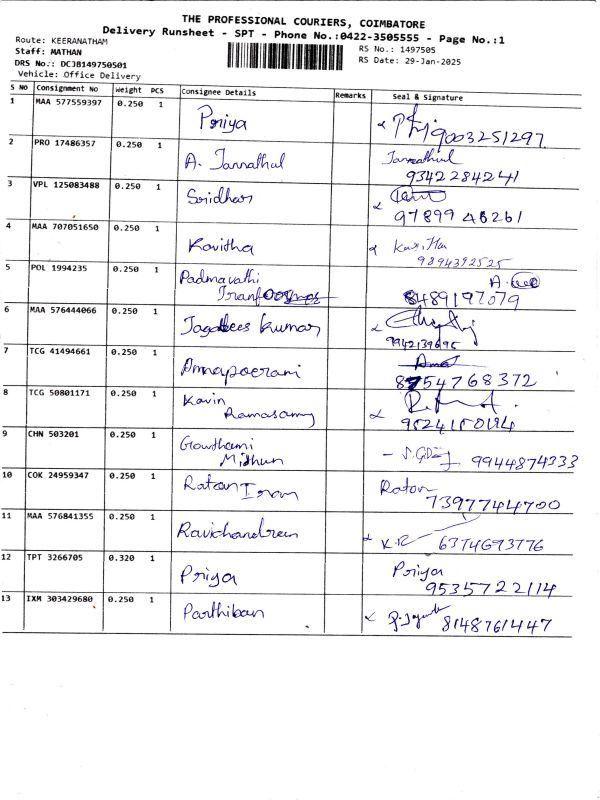 THE PROFESSIONAL COURIERS, COIMBATORE
Delivery Runsheet - SPT - Phone No.:0422-3505555 - Page No.:1
Route: KEERANATHAM
RS No.: 1497505
Staff: MATHAN
RS Date: 29-Jan-2025
DRS No.: DCJB149750501
Vehicle: Office Delivery
S NO Consignment No Weight PCS Consignee Details Remarks Seal & Signature
1 MAA 577559397 0.250 1 Priya 9003251297
2 PRO 17486357 0.250 1 A. Jannathul Jannathul
9342284241
3 VPL 125083488 0.250 1 Sridhar
9789948261
4 MAA 707051650 0.250 1 Kavitha
9894392525
5 POL 1994235 0.250 1 Padmavathi
8489197079
6 MAA 576444066 0.250 1 Jagadees kumar
9942139695
7 TCG 41494661 0.250 1 Annapoorani
8754768372
8 TCG 50801171 0.250 1 Kavin
Ramasamy
9 CHN 503201 0.250 1 Gowthami
Mithun 9944874333
10 COK 24959347 0.250 1 Ratan Ratan
7397744700
11 MAA 576841355 0.250 1 Ravichandran K.R 6374693776
12 TPT 3266705 0.320 1 Priya Priya
9535722114
13 IXM 303429680 0.250 1 Parthiban 8148761447